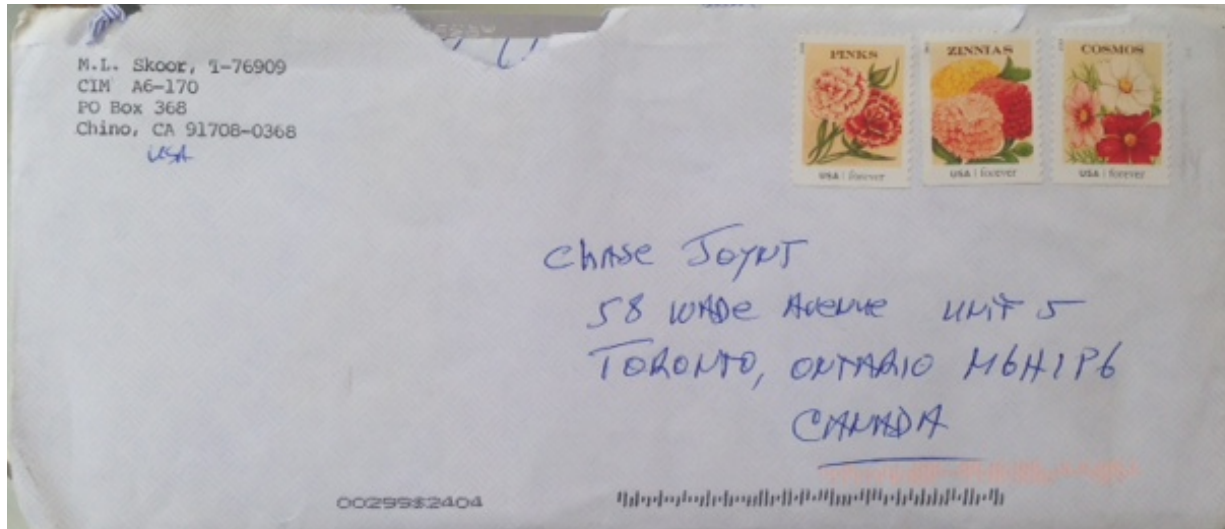 M.L. Skoor, T-76909
CIM A6-170
PO Box 368
Chino, CA 91708-0368
USA
PINKS
USA | forever
ZINNIAS
USA | forever
COSMOS
USA | forever
Chase Joynt
58 Wade Avenue Unit 5
Toronto, Ontario M6H1P6
Canada
00299$2404